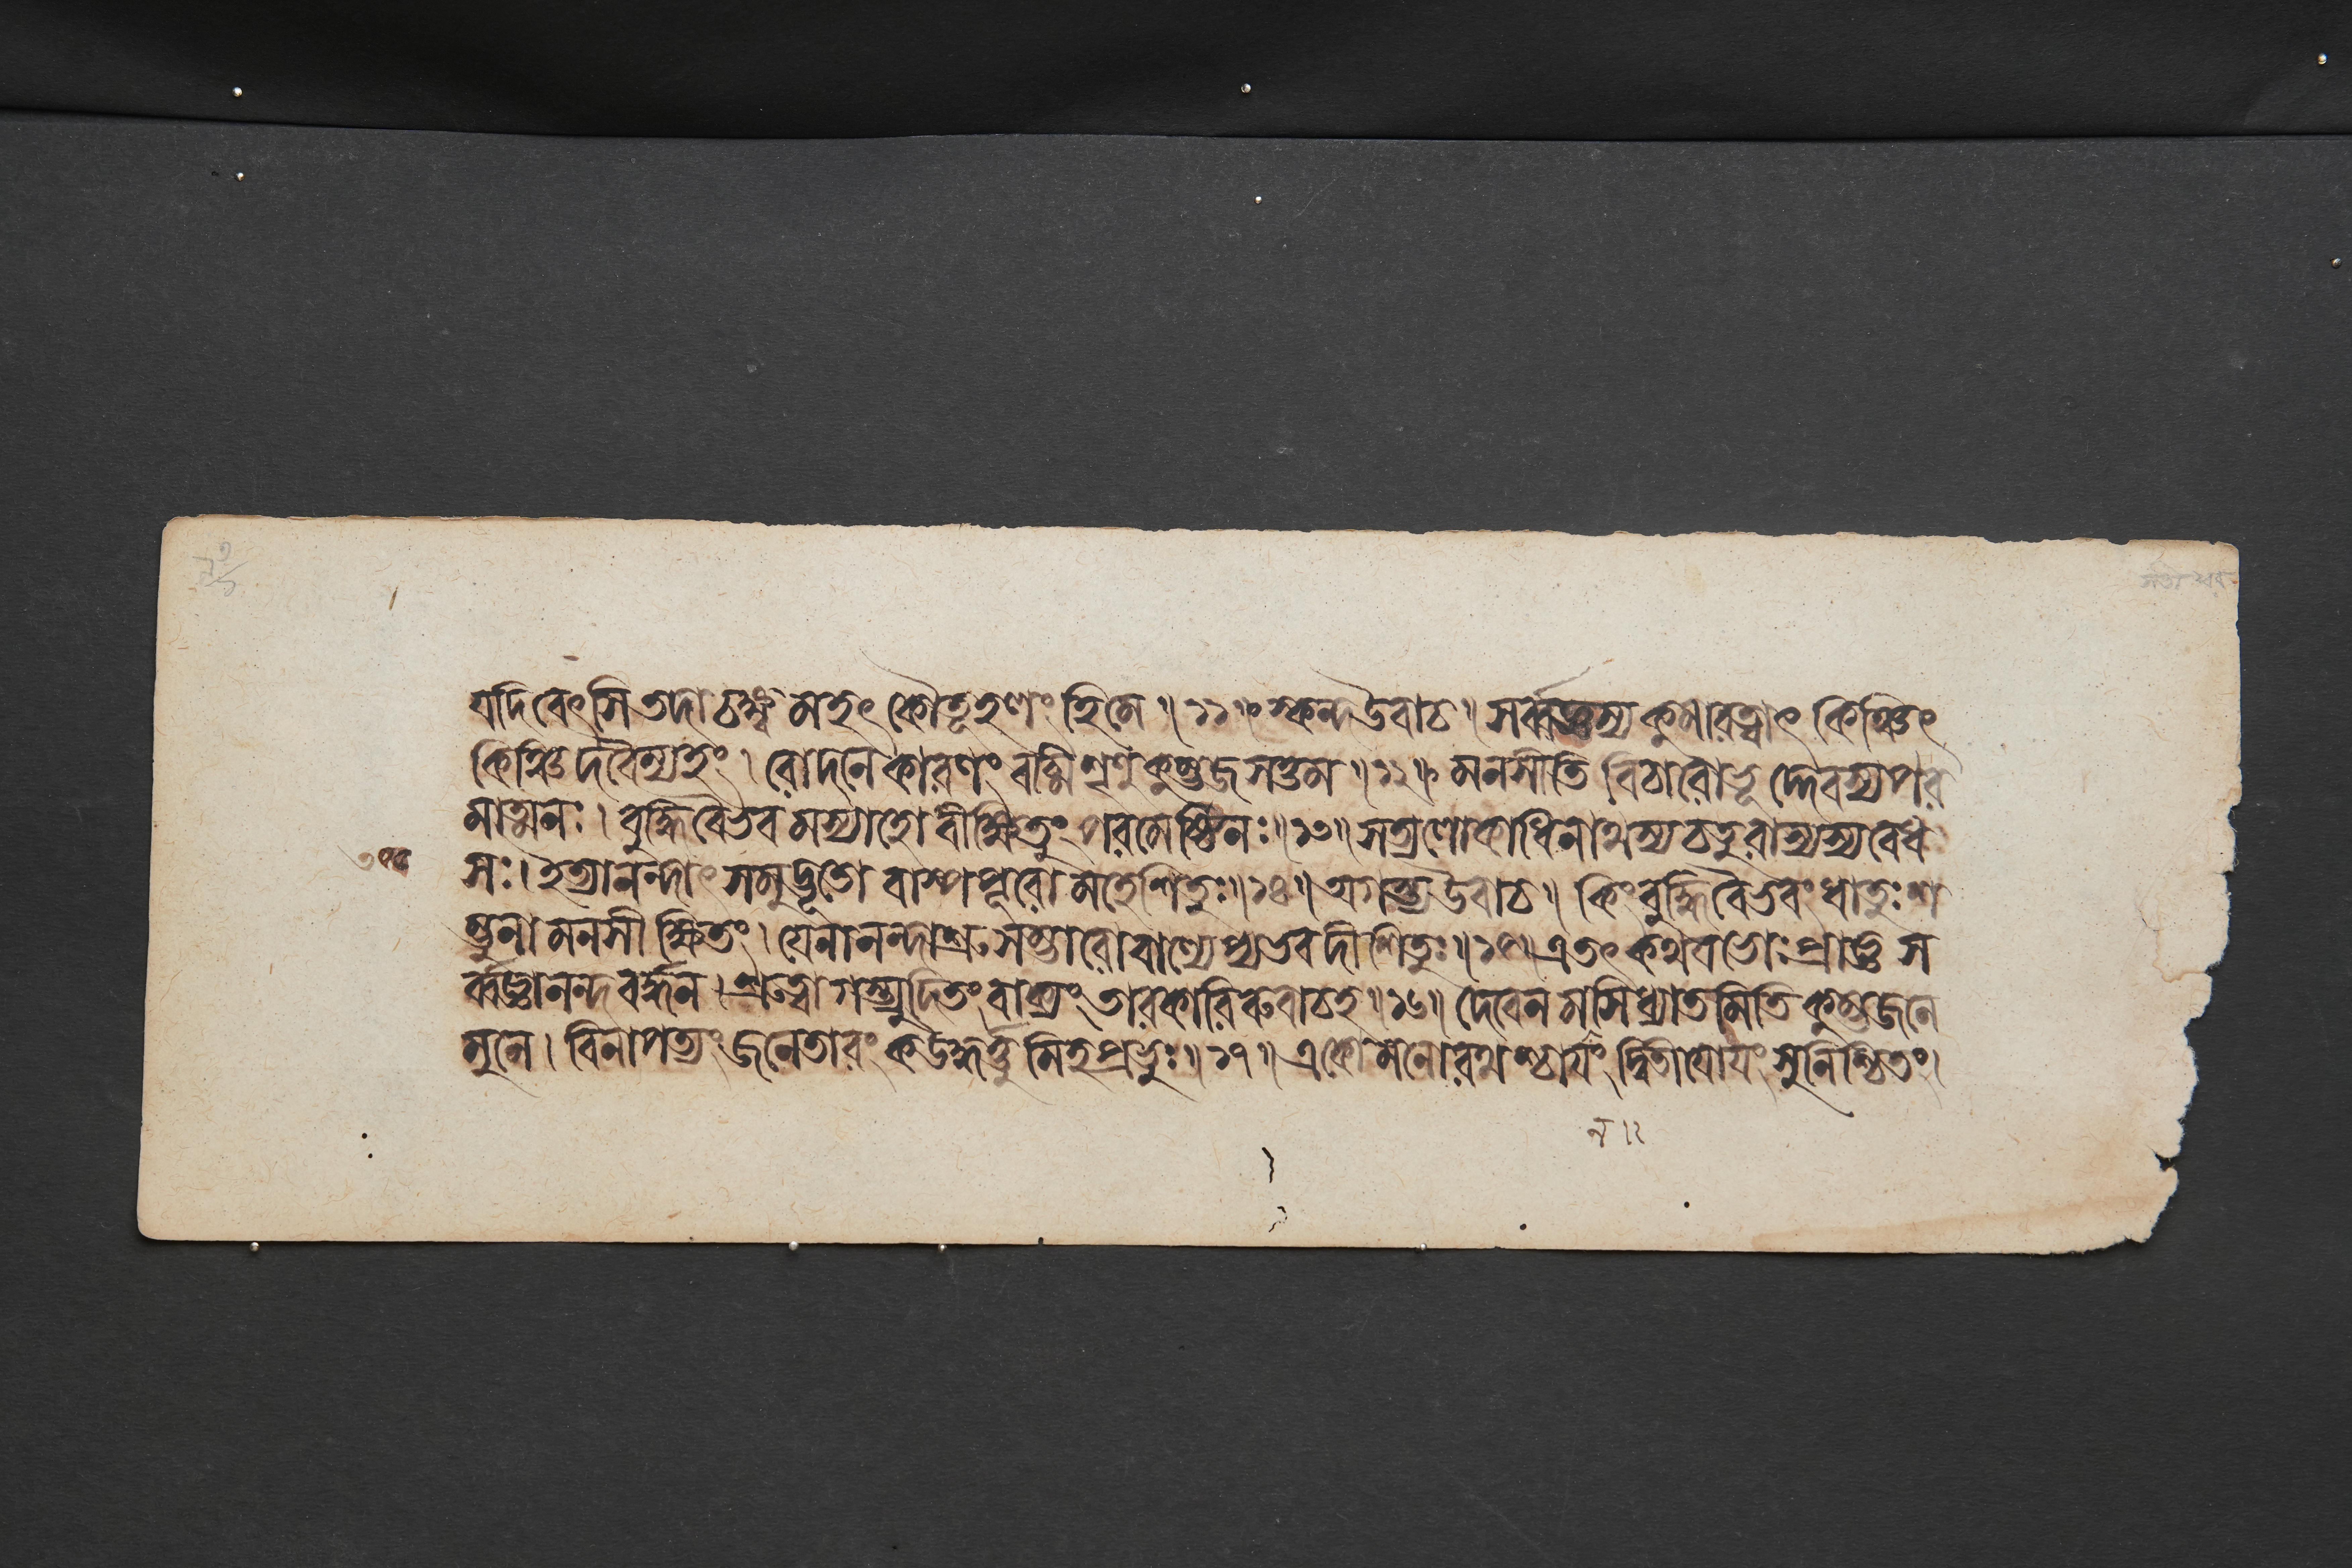 যদি বেৎসি তদাচক্ষ্ব মহৎ কৌতূহলং হি মে ॥ ১১॥ স্কন্দ উবাচ ॥ সর্ব্বজ্ঞস্য কুমারত্বাৎ কিঞ্চিৎ
কিঞ্চিদবৈম্যহং । রোদনে কারণং বচ্মি শৃণু কুম্ভজ সত্তম ॥ ১২॥ মনসীতি বিচারোভূদ্দেবস্য পর
মাত্মনঃ । বুদ্ধিবৈভবমস্যাহো বীক্ষিতুং পরমেষ্ঠিনঃ ॥ ১৩॥ সত্যলোকাধিনাথস্য চতুরাস্যস্য বেধ
সঃ । ইত্যানন্দাৎ সমুদ্ভূতো বাষ্পপূরো মহেশিতুঃ ॥ ১৪॥ অগস্ত্য উবাচ ॥ কিং বুদ্ধিবৈভবং ধাতুঃ শ
ম্ভুনা মনসীক্ষিতং । যেনানন্দাশ্রুসম্ভারো বাল্যেপ্যভবদীশিতুঃ ॥ ১৫॥ এতৎ কথয ভোঃ প্রাজ্ঞ স
র্ব্বজ্ঞানন্দবর্দ্ধন । শ্রুত্বাগস্ত্যুদিতং বাক্যং তারকারিরুবাচহ ॥ ১৬॥ দেবেন মসি ধ্যাতমিতি কুম্ভজনে
মুনে । বিনাপত্যং জনেতারং ক উদ্ধর্ত্তুমিহ প্রভুঃ ॥ ১৭ ॥ একো মনোরথশ্চাযং দ্বিতীযোযং সুনিশ্চিতং।
ন ॥